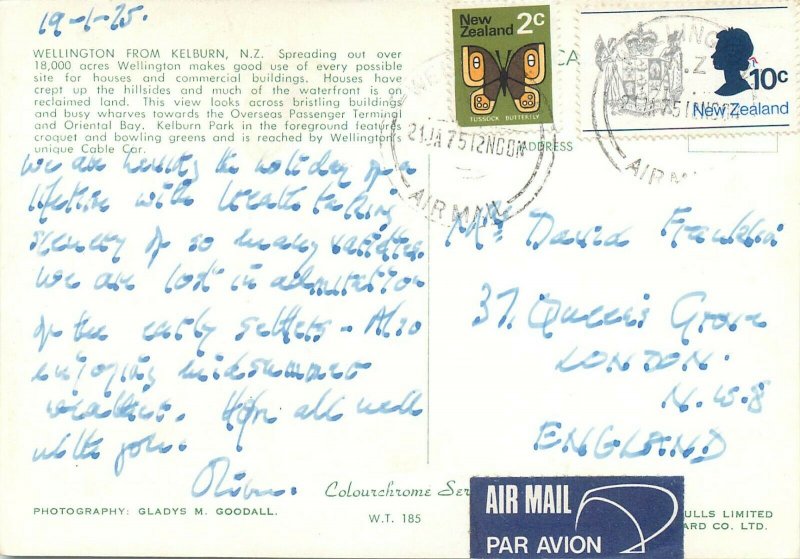 19-1-75.
WELLINGTON FROM KELBURN, N.Z. Spreading out over
18,000 acres Wellington makes good use of every possible
site for houses and commercial buildings. Houses have
crept up the hillsides and much of the waterfront is on
reclaimed land. This view looks across bristling buildings
and busy wharves towards the Overseas Passenger Terminal
and Oriental Bay. Kelburn Park in the foreground features
croquet and bowling greens and is reached by Wellington's
unique Cable Car.
We are having the holiday of a
lifetime with breath taking
scenery of so many varieties.
We are lost in admiration
of the early settlers - Also
enjoying midsummer
weather. Hope all well
with you.
PHOTOGRAPHY: GLADYS M. GOODALL.
Colourchrome Ser
W.T. 185
New Zealand 2c
TUSSOCK BUTTERFLY
10c
New Zealand
21JA75 12NOON
AIR MAIL
21JA75 12NOON
ADDRESS
Mr David Franklin
37, Queens Grove
LONDON.
N.W.8
ENGLAND
AIR MAIL
PAR AVION
ULLS LIMITED
ARD CO. LTD.